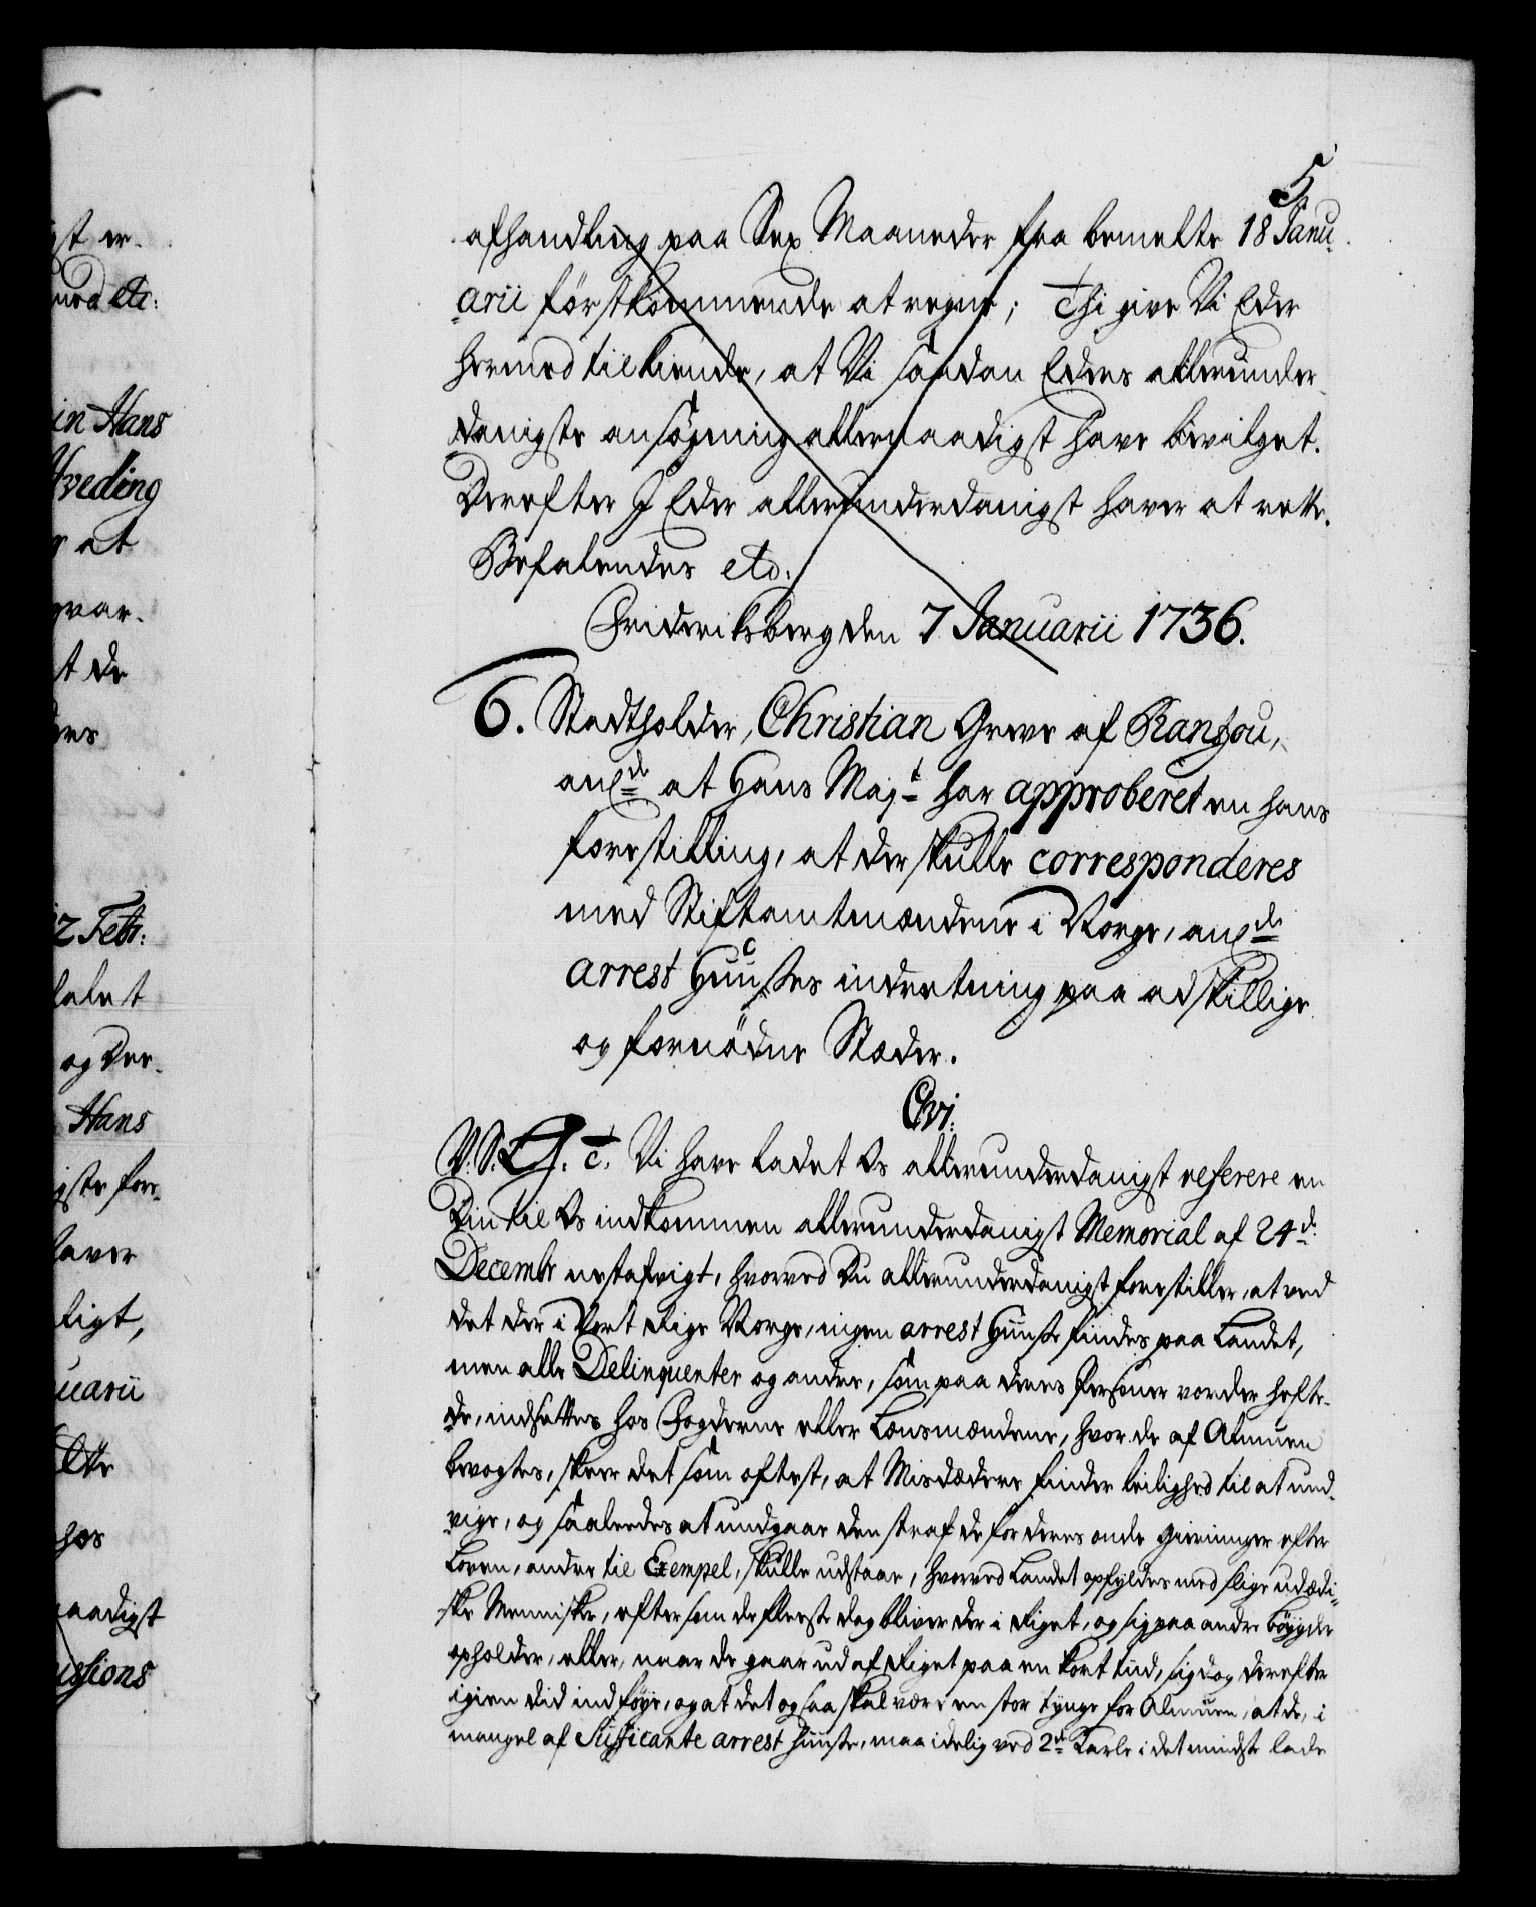 5.
afhandling paa Sex Maaneder fra bemelte 18 Janu
arii förstkommende at regne; thi give Vi Eder
hermed tilkiende, at Vi saadan Eders allerunder
danigste ansøgning allernaadigst have bevilget.
Derefter I Eder allerunderdanigst haver at rette.
Befalendes etc.
Frideriksberg den 7 Januarii 1736.
6. Stadtholder, Christian Greve af Ranzou,
ang de at Hans Maj t har approberet en hans
forestilling, at der skulle corresponderes
med Stiftamtmændene i Norge, ang de
arrest Huuses indretning paa adskillige
og fornödne Stæder.
Cvi.
V. S. G. t. Vi have ladet Os allerunderdanigst referere en
Din til Os indkommen allerunderdanigst Memorial af 24 d
Decembr nestafvigt, hvorved Du allerunderdanigst forestiller, at ved
det der i Vort Rige Norge, ingen arrest Huuse findes paa Landet,
men alle Delinqventer og andre, som paa deres Personer vorder hefte-
de, indsettes hos Fogderne eller Lensmændene, hvor de af Almuen
bevogtes, skeer det som oftest, at Misdædere finder leilighed til at und-
vige, og saaleedes at undgaae den straf de for deres onde gierninger efter
Loven, andre til Exempel, skulle udstaae, hvorved Landet opfyldes med slige udædi-
ske Mennisker, eftersom de fleeste dog bliver der i Riget, og sig paa andre böygder
opholder, eller, naar de gaar ud af Riget paa en kort tiid, sig dog derefter
igien did indföye, og at det og saa skal være en stor tynge for Almuen, at de, i
mangel af Sufficante arrest huuse, maa idelig ved 2de Karle i det mindste lade
gst er-
etc:
in Hans
Hveding
at
qvar-
t de
12 Febr:
og der-
Hans
gste for-
haver
ligt,
uarii
hos
naadigst
ussions